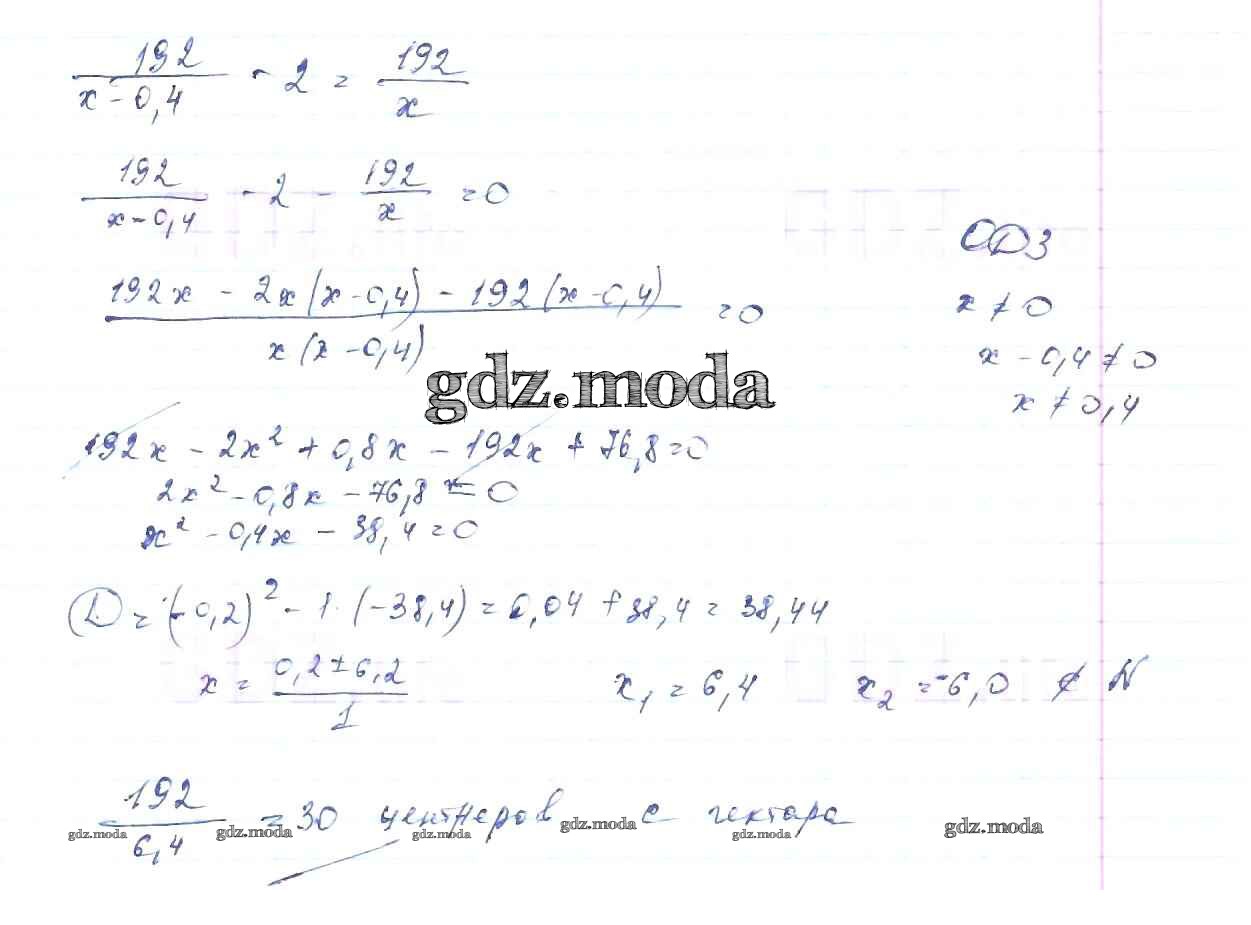 192/(x - 0,4) - 2 = 192/x
192/(x - 0,4) - 2 - 192/x = 0
ОДЗ
(192x - 2x(x - 0,4) - 192(x - 0,4))/(x(x - 0,4)) = 0
x ≠ 0
x - 0,4 ≠ 0
x ≠ 0,4
gdz.moda
192x - 2x² + 0,8x - 192x + 76,8 = 0
2x² - 0,8x - 76,8 = 0
x² - 0,4x - 38,4 = 0
D = (-0,2)² - 1·(-38,4) = 0,04 + 38,4 = 38,44
x = (0,2 ± 6,2)/1 x₁ = 6,4 x₂ = -6,0 ∉ N
192/6,4 = 30 центнеров с гектара
gdz.moda gdz.moda gdz.moda gdz.moda gdz.moda gdz.moda